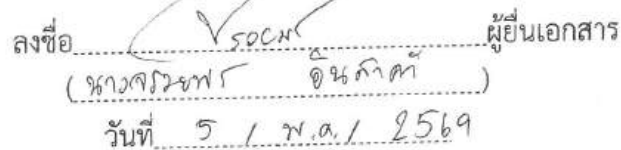 ลงชื่อ ผู้ยื่นเอกสาร
(นางจรวยพร อินคำ)
วันที่ 5 / พ.ค. / 2569